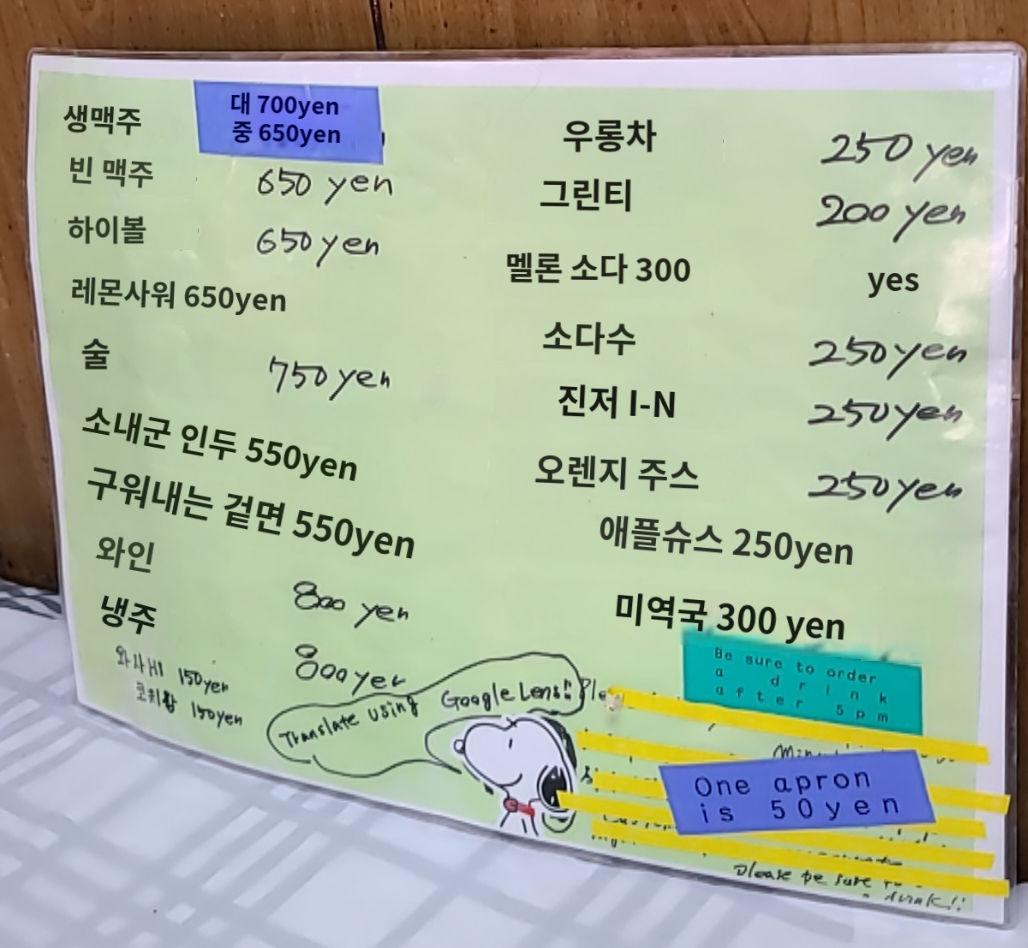 생맥주
대 700yen
중 650yen
빈 맥주 650 yen
하이볼 650yen
레몬사워 650yen
술 750yen
소내군 인두 550yen
구워내는 겉면 550yen
와인 800 yen
냉주 800yen
와사비 150yen
150yen
우롱차 250 yen
그린티 200 yen
멜론 소다 300 yes
소다수 250yen
진저 I-N 250yen
오렌지 주스 250yen
애플슈스 250yen
미역국 300 yen
Be sure to order
a drink
after 5pm
Translate using Google Lens!!
One apron
is 50yen
please be sure
drink!!